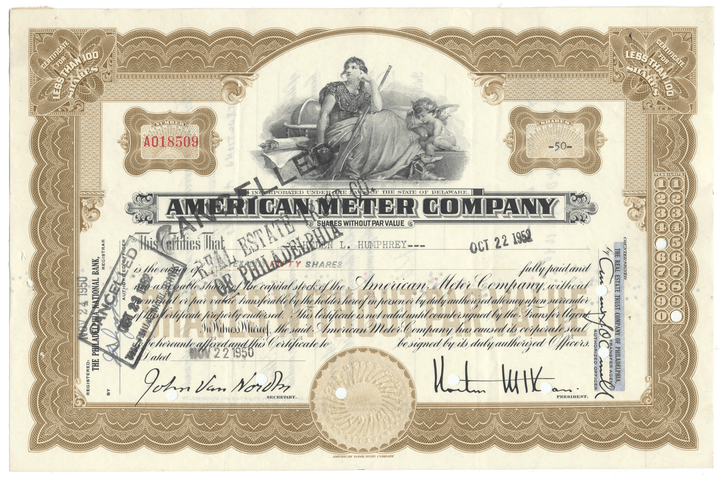 CERTIFICATE
FOR
LESS THAN 100
SHARES
CERTIFICATE
FOR
LESS THAN 100
SHARES
NUMBER
A018509
SHARES
-50-
CANCELLED
INCORPORATED UNDER THE LAWS OF THE STATE OF DELAWARE
AMERICAN METER COMPANY
SHARES WITHOUT PAR VALUE
REAL ESTATE TRUST CO.
OF PHILADELPHIA
This Certifies That L. HUMPHREY---
OCT 22 1952
is the owner of FIFTY SHARES fully paid and
non-assessable shares of the capital stock of the American Meter Company, without
nominal or par value, transferable by the holder hereof in person or by duly authorized attorney upon the surrender
of this certificate properly endorsed. This Certificate is not valid until countersigned by the Transfer Agent
In Witness Whereof, the said American Meter Company has caused its corporate seal
to be hereunto affixed and this Certificate to be signed by its duly authorized Officers.
Dated NOV 22 1950
John Van Norden
SECRETARY.
PRESIDENT.
REGISTERED: NOV 24 1950
THE PHILADELPHIA NATIONAL BANK,
REGISTRAR.
BY
CANCELLED
COUNTERSIGNED
THE REAL ESTATE TRUST COMPANY OF PHILADELPHIA
TRANSFER AGENT
AMERICAN BANK NOTE COMPANY